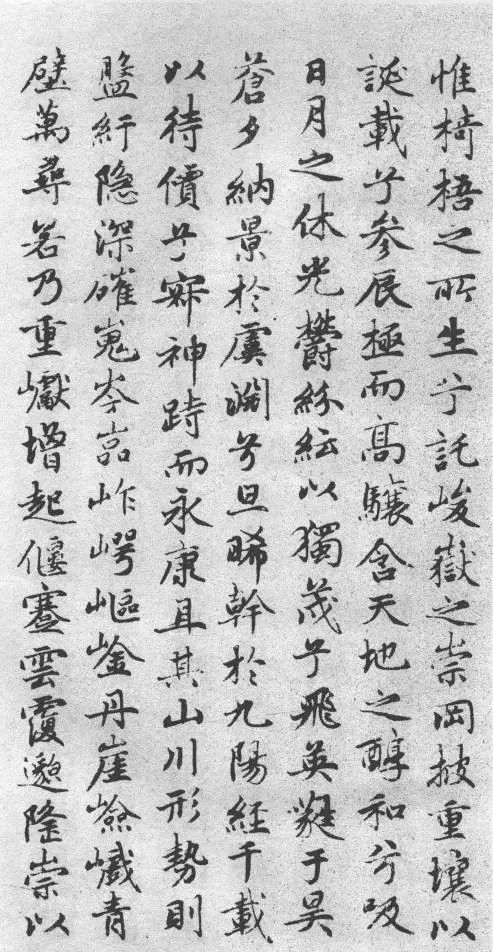 惟椅梧之所生兮託峻嶽之崇岡披重壤以
誕載兮参辰極而高驤含天地之醇和兮吸
日月之休光欝紛紜以獨茂兮飛英蕤于昊
蒼夕納景於虞淵兮旦晞幹於九陽経千載
以待價兮寂神跱而永康且其山川形勢則
盤紆隐深磪嵬岑嵓岞崿嶇崟丹崖嶮巇青
壁萬尋若乃重巘增起偃蹇雲覆邈隆崇以